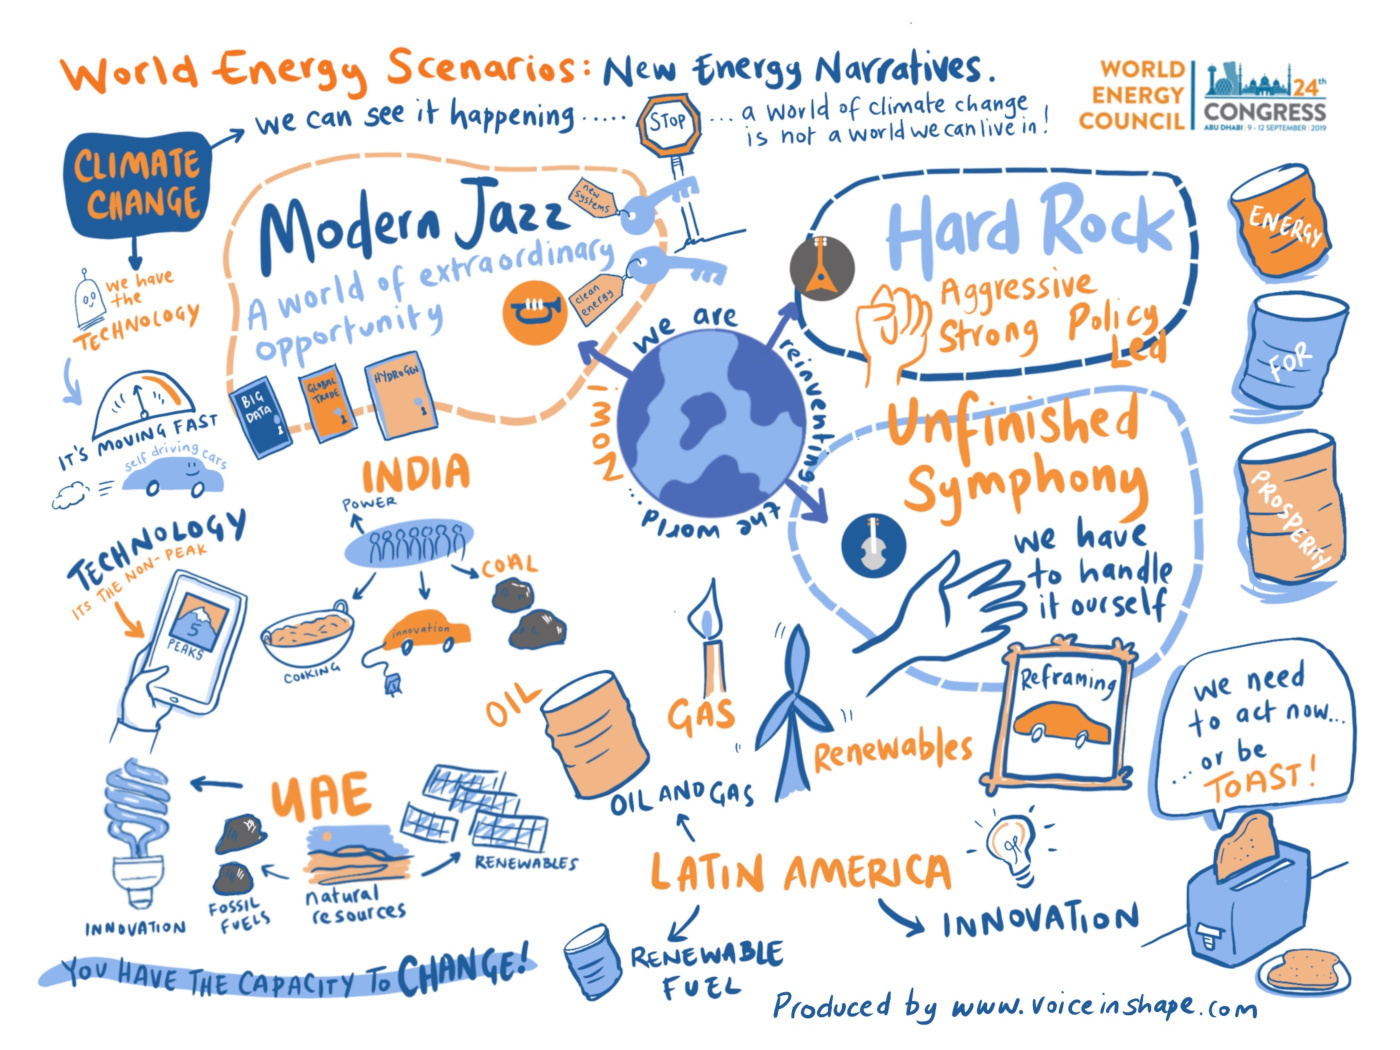 World Energy Scenarios: New Energy Narratives.
WORLD
ENERGY
COUNCIL
24th
CONGRESS
ABU DHABI | 9 - 12 SEPTEMBER | 2019
CLIMATE
CHANGE
we can see it happening.....
STOP
... a world of climate change
is not a world we can live in!
we have
the
TECHNOLOGY
IT'S MOVING FAST
self driving cars
TECHNOLOGY
ITS THE NON-PEAK
5
PEAKS
Modern Jazz
A world of extraordinary
opportunity
new
systems
clean
energy
BIG
DATA
GLOBAL
TRADE
HYDROGEN
we are
reinventing
the world...
NOW!
Hard Rock
Aggressive
Strong Policy
Led
Unfinished
Symphony
we have
to handle
it ourself
ENERGY
FOR
PROSPERITY
INDIA
POWER
COAL
COOKING
innovation
OIL
GAS
OIL AND GAS
Renewables
Reframing
we need
to act now...
... or be
TOAST!
UAE
INNOVATION
FOSSIL
FUELS
natural
resources
RENEWABLES
LATIN AMERICA
INNOVATION
RENEWABLE
FUEL
YOU HAVE THE CAPACITY TO CHANGE!
Produced by www.voiceinshape.com